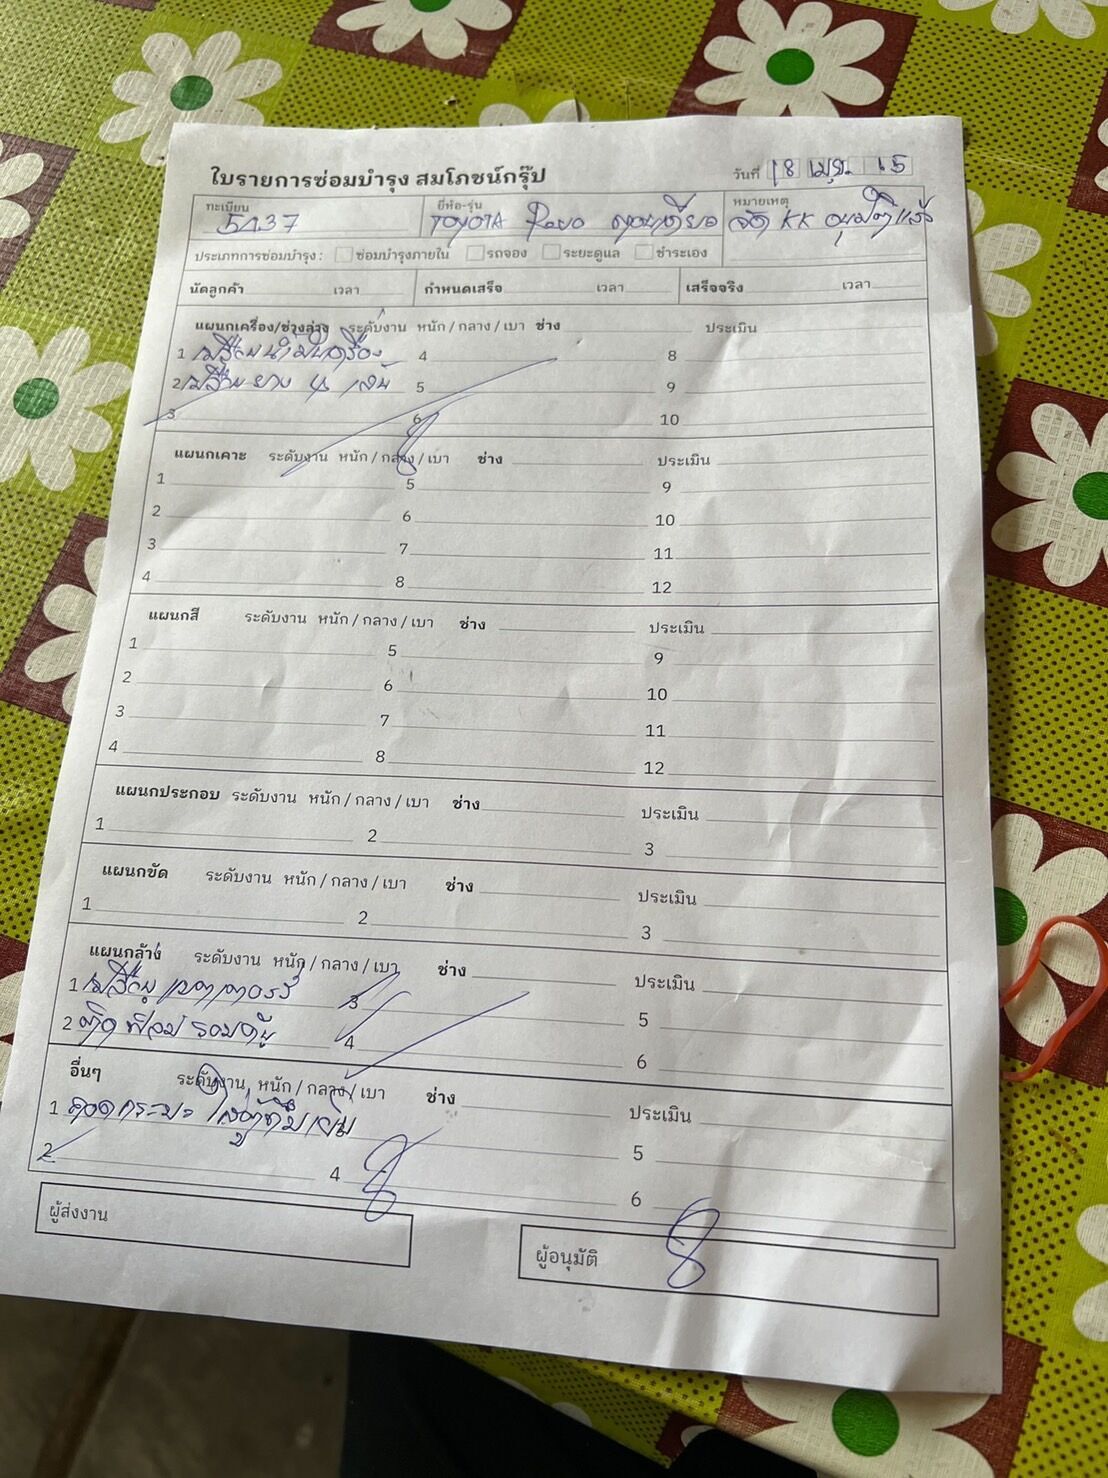 ใบรายการซ่อมบำรุง สมโภชน์กรุ๊ป
วันที่ 18 เมย. 65
ทะเบียน ยี่ห้อ-รุ่น หมายเหตุ
5137 TOYOTA Revo ตอนเดียว จัด KK อนุมัติแล้ว
ประเภทการซ่อมบำรุง : ซ่อมบำรุงภายใน รถจอง ระยะดูแล ชำระเอง
นัดลูกค้า เวลา กำหนดเสร็จ เวลา เสร็จจริง เวลา
แผนกเครื่อง/ช่วงล่าง ระดับงาน หนัก / กลาง / เบา ช่าง ประเมิน
1 เปลี่ยนน้ำมันเครื่อง 4 8
2 เปลี่ยนยาง 4 เส้น 5 9
3 6 10
แผนกเคาะ ระดับงาน หนัก / กลาง / เบา ช่าง ประเมิน
1 5 9
2 6 10
3 7 11
4 8 12
แผนกสี ระดับงาน หนัก / กลาง / เบา ช่าง ประเมิน
1 5 9
2 6 10
3 7 11
4 8 12
แผนกประกอบ ระดับงาน หนัก / กลาง / เบา ช่าง ประเมิน
1 2 3
แผนกขัด ระดับงาน หนัก / กลาง / เบา ช่าง ประเมิน
1 2 3
แผนกล้าง ระดับงาน หนัก / กลาง / เบา ช่าง ประเมิน
1 เปลี่ยน แบตเตอรรี่ 3 5
2 ติดฟิล์ม รอบคัน 4 6
อื่นๆ ระดับงาน หนัก / กลาง / เบา ช่าง ประเมิน
1 ถอดกระบะ ใส่ตู้ทึบเย็น 5
2 4 6
ผู้ส่งงาน ผู้อนุมัติ